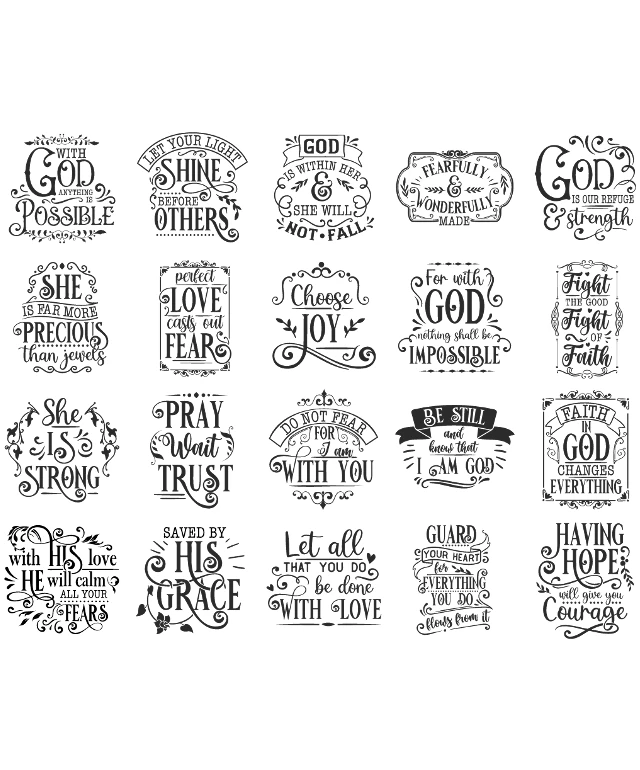 WITH
GOD
ANYTHING
IS
POSSIBLE
LET YOUR LIGHT
SHINE
BEFORE
OTHERS
GOD
IS WITHIN HER
&
SHE WILL
NOT • FALL
FEARFULLY
&
WONDERFULLY
MADE
GOD
IS OUR REFUGE
& strength
SHE
IS FAR MORE
PRECIOUS
than jewels
perfect
LOVE
casts out
FEAR
Choose
JOY
For with
GOD
nothing shall be
IMPOSSIBLE
Fight
THE GOOD
Fight
OF
Faith
She
IS
STRONG
PRAY
Wait
TRUST
DO NOT FEAR
FOR
I am
WITH YOU
BE STILL
and
know that
I AM GOD
FAITH
IN
GOD
CHANGES
EVERYTHING
with HIS love
HE will calm
ALL YOUR
FEARS
SAVED BY
HIS
GRACE
Let all
THAT YOU DO
be done
WITH LOVE
GUARD
YOUR HEART
for
EVERYTHING
YOU DO
flows from it
HAVING
HOPE
will give you
Courage